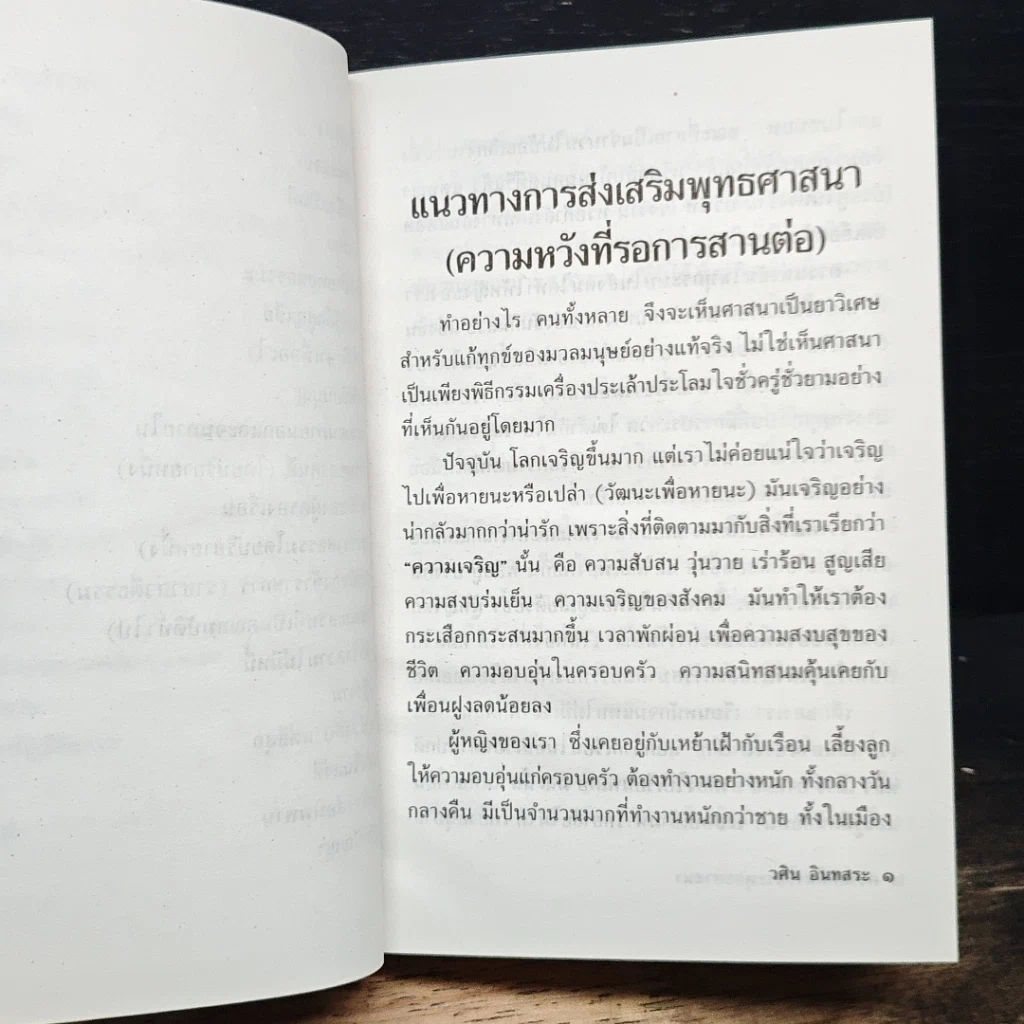 แนวทางการส่งเสริมพุทธศาสนา
(ความหวังที่รอการสานต่อ)
ทำอย่างไร คนทั้งหลาย จึงจะเห็นศาสนาเป็นยาวิเศษ
สำหรับแก้ทุกข์ของมวลมนุษย์อย่างแท้จริง ไม่ใช่เห็นศาสนา
เป็นเพียงพิธีกรรมเครื่องประเล้าประโลมใจชั่วครู่ชั่วยามอย่าง
ที่เห็นกันอยู่โดยมาก
ปัจจุบัน โลกเจริญขึ้นมาก แต่เราไม่ค่อยแน่ใจว่าเจริญ
ไปเพื่อหายนะหรือเปล่า (วัฒนะเพื่อหายนะ) มันเจริญอย่าง
น่ากลัวมากกว่าน่ารัก เพราะสิ่งที่ติดตามมากับสิ่งที่เราเรียกว่า
“ความเจริญ” นั้น คือ ความสับสน วุ่นวาย เร่าร้อน สูญเสีย
ความสงบร่มเย็น ความเจริญของสังคม มันทำให้เราต้อง
กระเสือกกระสนมากขึ้น เวลาพักผ่อน เพื่อความสงบสุขของ
ชีวิต ความอบอุ่นในครอบครัว ความสนิทสนมคุ้นเคยกับ
เพื่อนฝูงลดน้อยลง
ผู้หญิงของเรา ซึ่งเคยอยู่กับเหย้าเฝ้ากับเรือน เลี้ยงลูก
ให้ความอบอุ่นแก่ครอบครัว ต้องทำงานอย่างหนัก ทั้งกลางวัน
กลางคืน มีเป็นจำนวนมากที่ทำงานหนักกว่าชาย ทั้งในเมือง
วศิน อินทสระ ๑